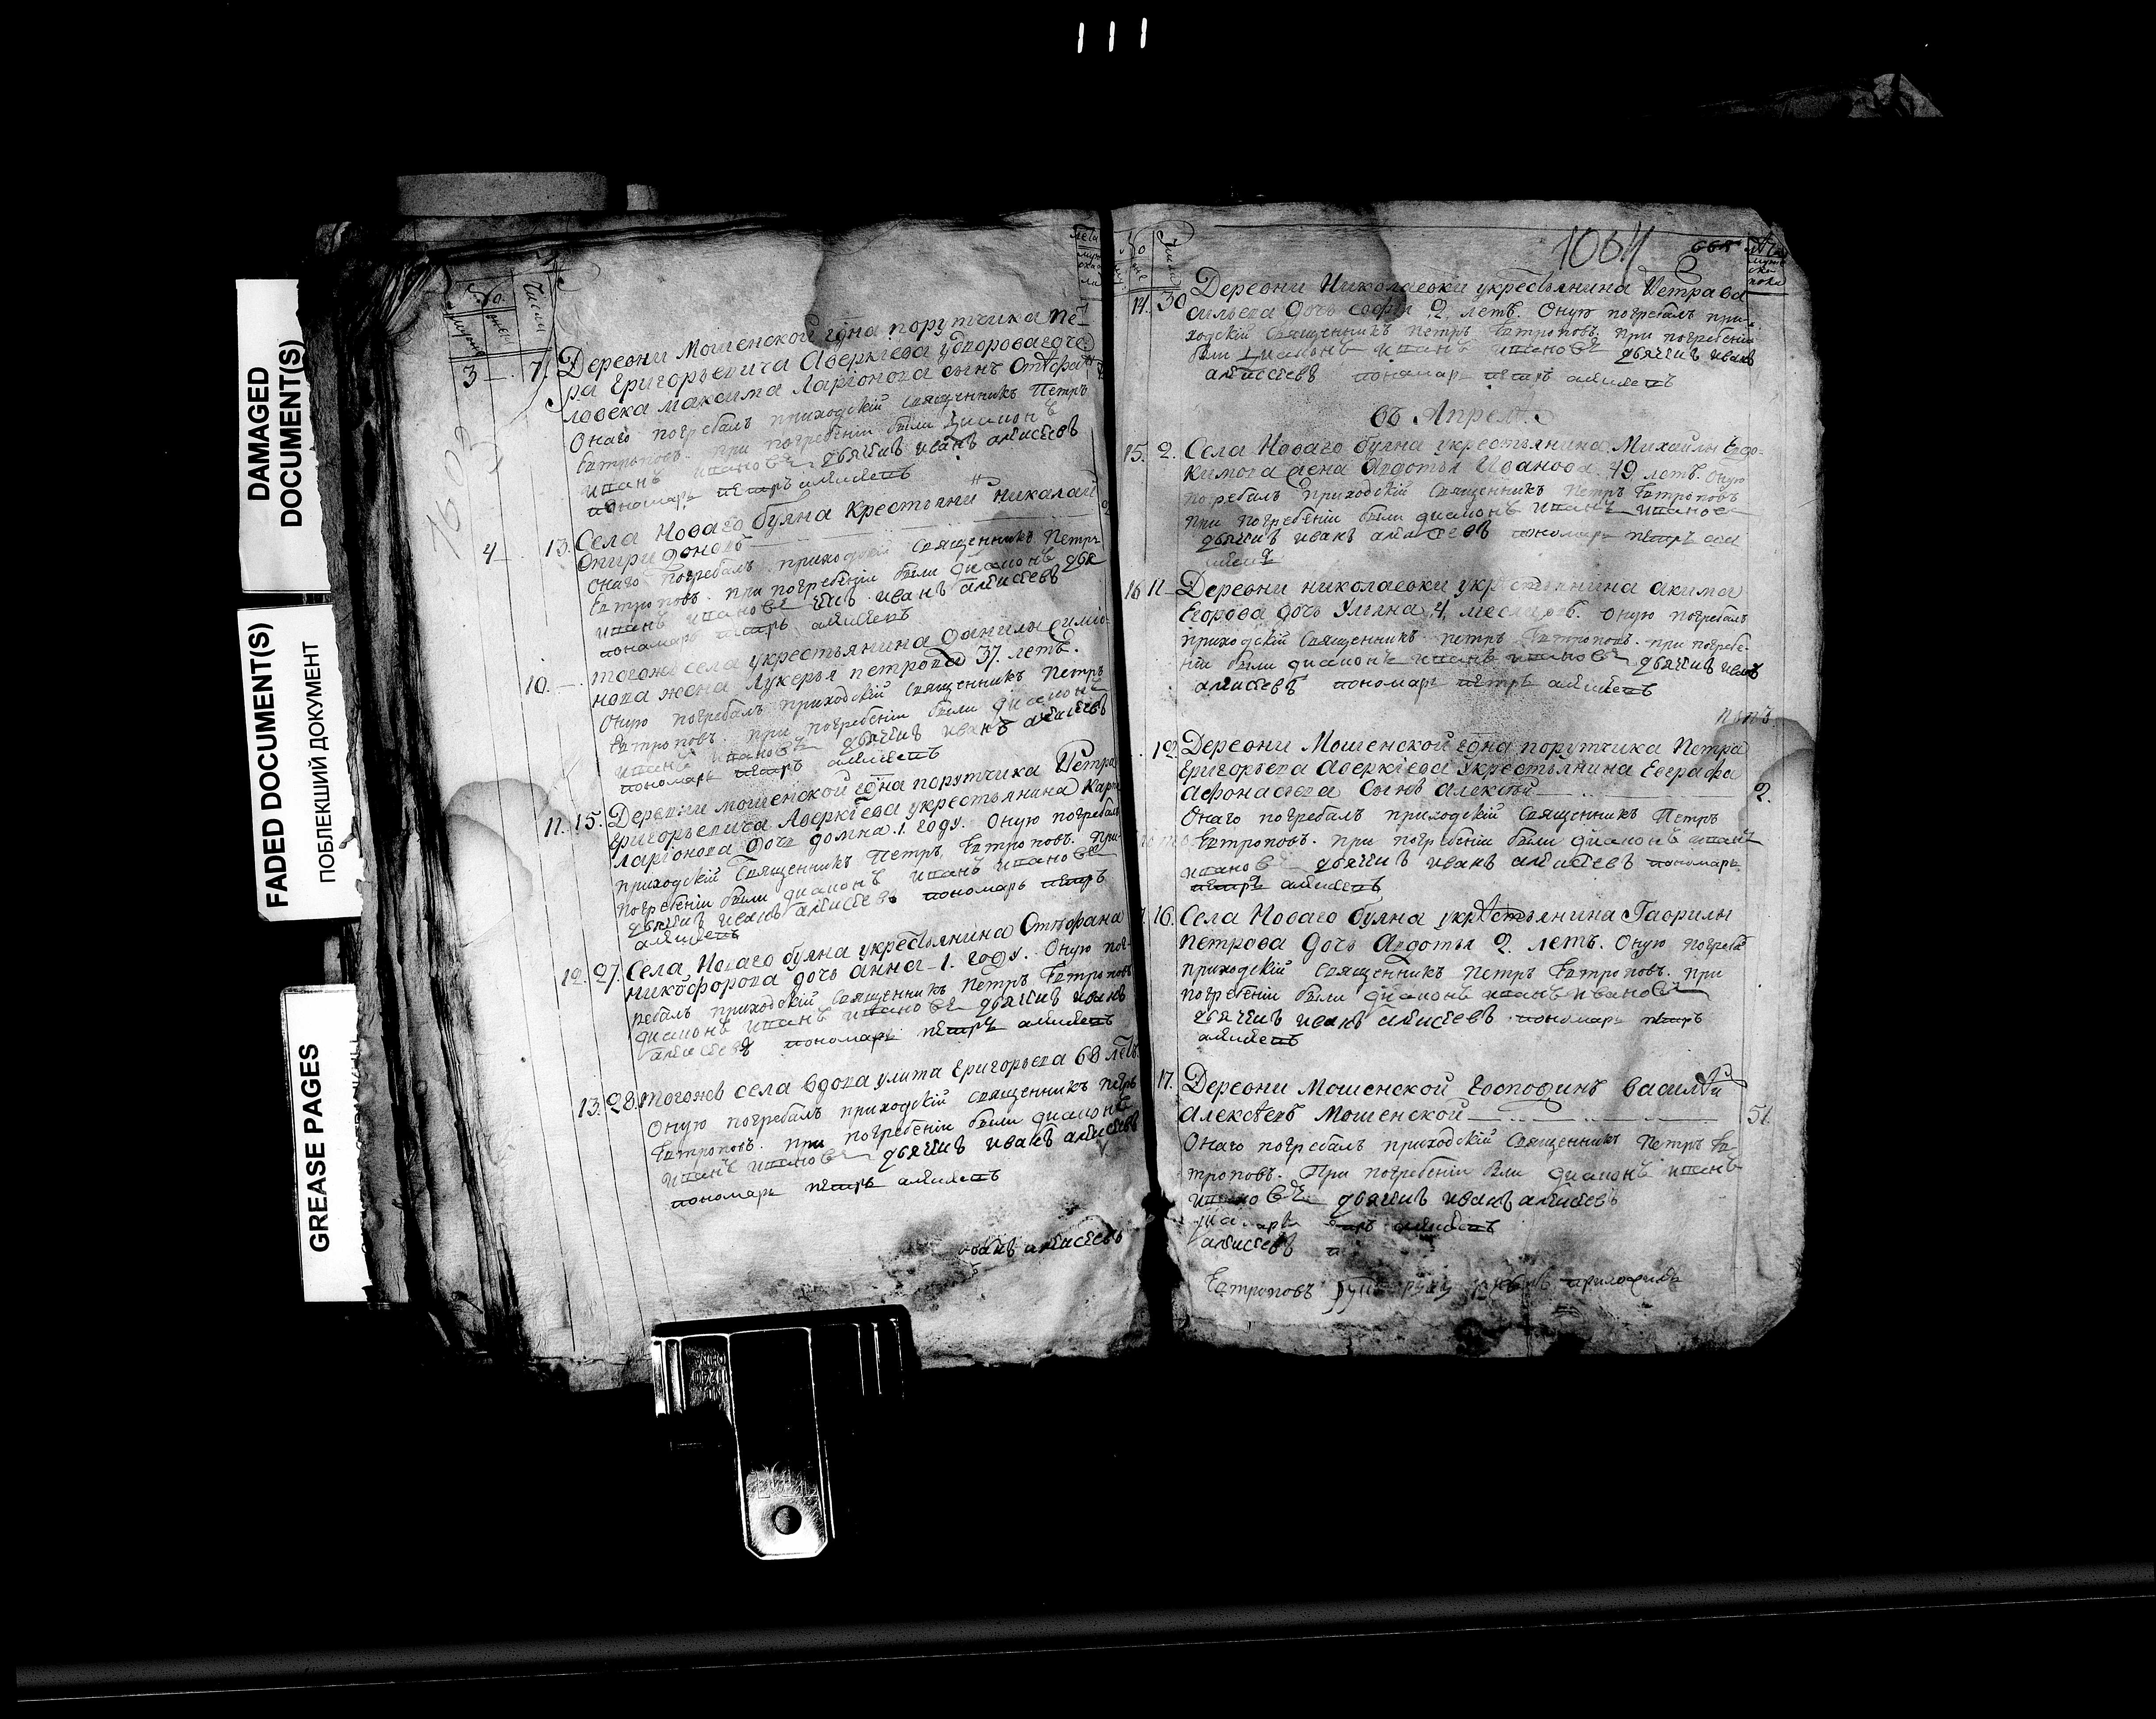 111
DAMAGED
DOCUMENT(S)
FADED DOCUMENT(S)
ПОБЛЕКШИЙ ДОКУМЕНТ
GREASE PAGES
3 7. Деревни Мошенской гдна порутчика Пе-
ра Григорьевича Аверкіева
ловека максима Ларіонова сынъ
Онаго погребалъ приходскій Священникъ Петръ
Евтроповъ. При погребеніи были діаконъ
иванъ ивановъ дьячикъ иванъ алексеевъ
пономарь петръ алексеевъ
4 13. Села Новаго буяна Крестьянинъ Николай
Спиридоновъ
Онаго погребалъ приходскій Священникъ Петръ
Евтроповъ. при погребеніи были діаконъ
иванъ ивановъ дьячикъ иванъ алексеевъ
пономарь петръ алексеевъ
10. тогожъ села укрестьянина данилы Симіо-
нова жена Лукерья петрова 37. летъ.
Оную погребалъ приходскій Священникъ Петръ
Евтроповъ. при погребеніи были діаконъ
иванъ ивановъ дьячикъ иванъ алексеевъ
пономарь петръ алексеевъ
11. 15. Деревни мошенской гдна порутчика Петра
Григорьевича Аверкіева укрестьянина Карпа
Ларіонова дочь домна. 1. году. Оную погребалъ
приходскій Священникъ Петръ Евтроповъ. При
погребеніи были діаконъ иванъ ивановъ
дьячикъ иванъ алексеевъ пономарь петръ
алексеевъ
12. 27. Села Новаго буяна укрестьянина Стефана
никофорова дочь анна 1. году. Оную пог-
ребалъ приходскій Священникъ Петръ Евтроповъ
діаконъ иванъ ивановъ дьячикъ иванъ
алексеевъ пономарь петръ алексеевъ
13. 28. тогожъ села вдова улита Григорьева 68 летъ.
Оную погребалъ приходскій священникъ петръ
Евтроповъ. при погребеніи были діаконъ
иванъ ивановъ дьячикъ иванъ алексеевъ
пономарь петръ алексеевъ
иванъ алексеевъ
1064
14. 30. Деревни Николаевки укрестьянина Петра Ва
сильева дочь софья 2. летъ. Оную погребалъ при-
ходскій Священникъ Петръ Евтроповъ. при погребеніи
были діаконъ иванъ ивановъ дьячикъ иванъ
алексеевъ пономарь петръ алексеевъ
въ Апреле
15. 2. Села Новаго буяна укрестьянина Михайлы Евдо-
кимова жена Авдотья Иванова. 49. летъ. Оную
погребалъ приходскій Священникъ Петръ Евтроповъ
При погребеніи были діаконъ иванъ ивановъ
дьячикъ иванъ алексеевъ пономарь петръ
16 11 Деревни николаевки укрестьянина акима
Егорова дочь Ульяна 4. месяцовъ. Оную погребалъ
приходскій Священникъ петръ Евтроповъ. при погребе-
ніи были діаконъ иванъ ивановъ дьячикъ иванъ
алексеевъ пономарь петръ алексеевъ
12. Деревни Мошенской гдна порутчика Петра
Григорьева Аверкіева укрестьянина Евграфа
Афонасьева сынъ алексей 2.
Онаго погребалъ приходскій Священникъ Петръ
Евтроповъ. при погребеніи были діаконъ иванъ
ивановъ дьячикъ иванъ алексеевъ пономарь
петръ алексеевъ
16. Села Новаго буяна укрестьянина Гаврилы
петрова дочь Авдотья 2. летъ. Оную погребалъ
приходскій Священникъ Петръ Евтроповъ. при
погребеніи были діаконъ иванъ ивановъ
дьячикъ иванъ алексеевъ пономарь петръ
алексеевъ
17. Деревни Мошенской Господинъ василей
Алексеевъ Мошенской 51.
Онаго погребалъ приходскій Священникъ Петръ Ев
троповъ. При погребеніи были діаконъ иванъ
ивановъ дьячикъ иванъ алексеевъ
алексеевъ
алексеевъ
Евтроповъ